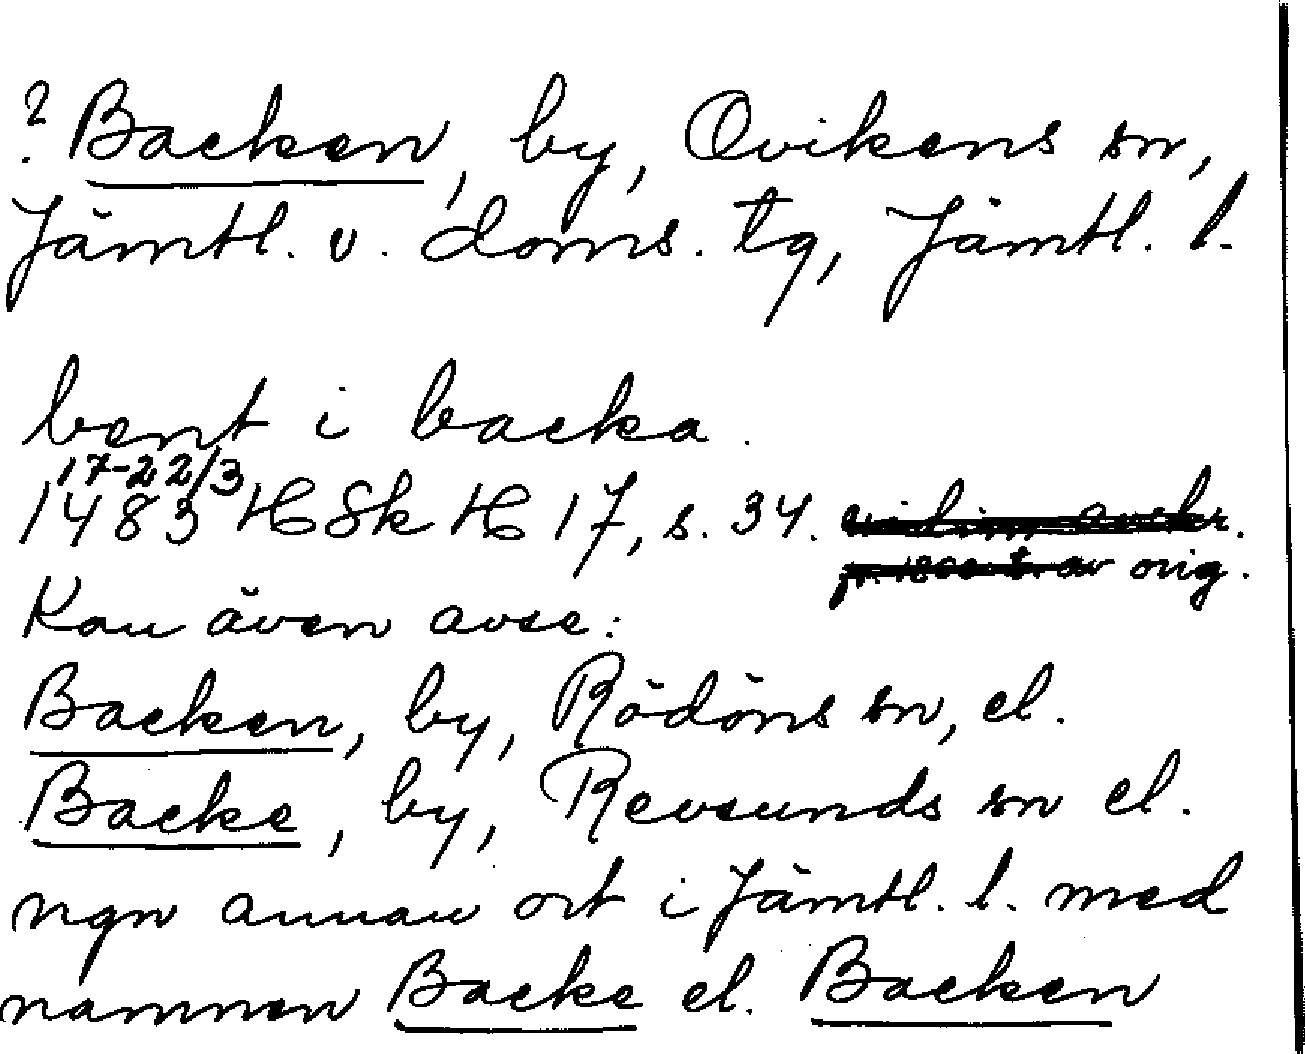 ? Backen, by, Ovikens sn,
Jämtl. v. doms. tg, Jämtl. l.
bent i backa.
17-22/3
1483 HSkH 17, s. 34. vidim. avskr.
fr. 1800-t. av orig.
Kan även avse:
Backen, by, Rödöns sn, el.
Backe, by, Revsunds sn el.
ngn annan ort i Jämtl. l. med
namnen Backe el. Backen